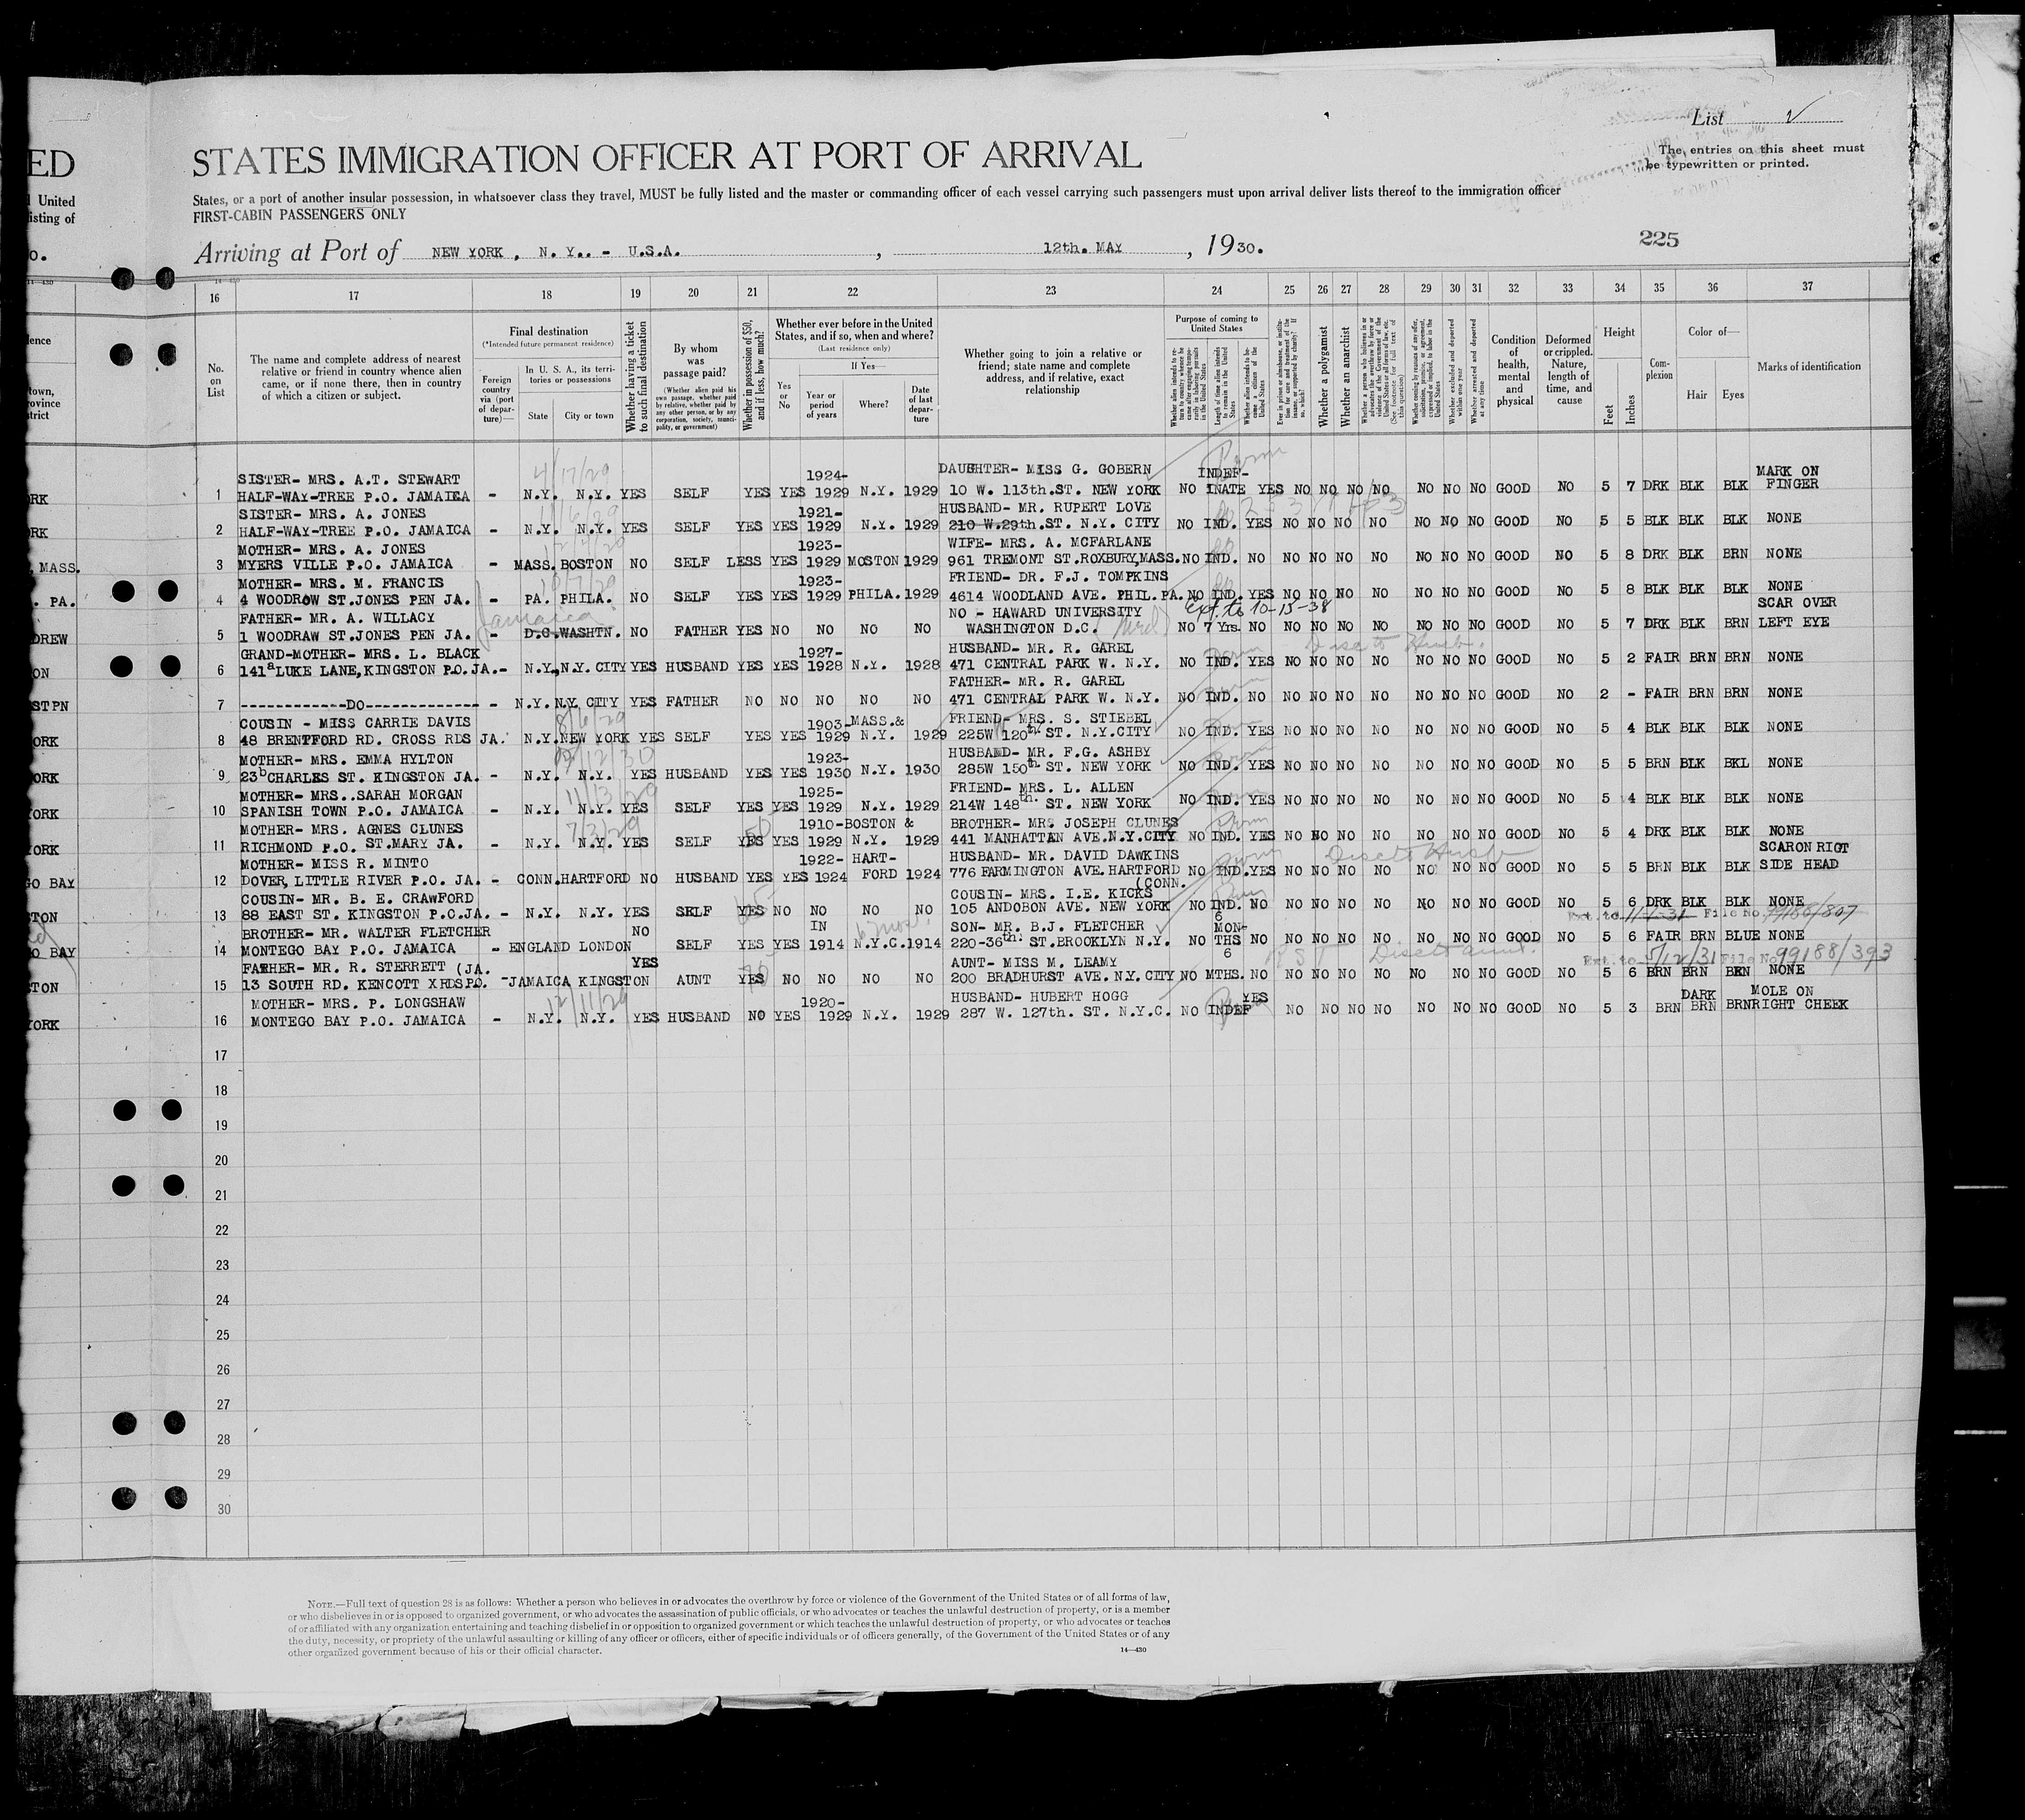 List 2
ED
STATES IMMIGRATION OFFICER AT PORT OF ARRIVAL
The entries on this sheet must
be typewritten or printed.
United
States, or a port of another insular possession, in whatsoever class they travel, MUST be fully listed and the master or commanding officer of each vessel carrying such passengers must upon arrival deliver lists thereof to the immigration officer
isting of
FIRST-CABIN PASSENGERS ONLY
Arriving at Port of NEW YORK, N. Y.. - U.S.A. , 12th. MAY , 1930.
225
16 17 18 19 20 21 22 23 24 25 26 27 28 29 30 31 32 33 34 35 36 37
No. on List
The name and complete address of nearest relative or friend in country whence alien came, or if none there, then in country of which a citizen or subject.
Final destination
(*Intended future permanent residence)
Foreign country via (port of departure)—
In U. S. A., its territories or possessions
State
City or town
Whether having a ticket to such final destination
By whom was passage paid?
(Whether alien paid his own passage, whether paid by relative, whether paid by any other person, or by any corporation, society, municipality, or government)
Whether in possession of $50, and if less, how much?
Whether ever before in the United States, and if so, when and where?
(Last residence only)
If Yes—
Yes or No
Year or period of years
Where?
Date of last departure
Whether going to join a relative or friend; state name and complete address, and if relative, exact relationship
Purpose of coming to United States
Length of time alien intends to remain in the United States
Whether alien intends to become a citizen of the United States
Whether a polygamist
Whether an anarchist
Whether excluded and deported within one year
Whether arrested and deported at any time
Condition of health, mental and physical
Deformed or crippled. Nature, length of time, and cause
Height
Feet
Inches
Complexion
Color of—
Hair
Eyes
Marks of identification
SISTER- MRS. A.T. STEWART 1924- DAUGHTER- MISS G. GOBERN INDEF- MARK ON
1 HALF-WAY-TREE P.O. JAMAICA - N.Y. N.Y. YES SELF YES YES 1929 N.Y. 1929 10 W. 113th.ST. NEW YORK NO INATE YES NO NO NO NO NO NO NO GOOD NO 5 7 DRK BLK BLK FINGER
SISTER- MRS. A. JONES 1921- HUSBAND- MR. RUPERT LOVE
2 HALF-WAY-TREE P.O. JAMAICA - N.Y. N.Y. YES SELF YES YES 1929 N.Y. 1929 210 W.29th.ST. N.Y. CITY NO IND. YES NO NO NO NO NO NO NO GOOD NO 5 5 BLK BLK BLK NONE
MOTHER- MRS. A. JONES 1923- WIFE- MRS. A. MCFARLANE
3 MYERS VILLE P.O. JAMAICA - MASS. BOSTON NO SELF LESS YES 1929 MOSTON 1929 961 TREMONT ST.ROXBURY,MASS. NO IND. NO NO NO NO NO NO NO NO GOOD NO 5 8 DRK BLK BRN NONE
MOTHER- MRS. M. FRANCIS 1923- FRIEND- DR. F.J. TOMPKINS
4 4 WOODROW ST.JONES PEN JA. - PA. PHILA. NO SELF YES YES 1929 PHILA. 1929 4614 WOODLAND AVE. PHIL.PA. NO IND. YES NO NO NO NO NO NO NO GOOD NO 5 8 BLK BLK BLK NONE
Jamaica
FATHER- MR. A. WILLACY NO - HAWARD UNIVERSITY Ext. to 10-15-38 SCAR OVER
5 1 WOODRAW ST.JONES PEN JA. - D.C. WASHTN. NO FATHER YES NO NO NO NO WASHINGTON D.C. NO 7 Yrs. NO NO NO NO NO NO NO NO GOOD NO 5 7 DRK BLK BRN LEFT EYE
GRAND-MOTHER- MRS. L. BLACK 1927- HUSBAND- MR. R. GAREL
6 141a LUKE LANE, KINGSTON P.O.JA.- N.Y. N.Y. CITY YES HUSBAND YES YES 1928 N.Y. 1928 471 CENTRAL PARK W. N.Y. NO IND. YES NO NO NO NO NO NO NO GOOD NO 5 2 FAIR BRN BRN NONE
FATHER- MR. R. GAREL
7 ------------DO------------- - N.Y. N.Y. CITY YES FATHER NO NO NO NO NO 471 CENTRAL PARK W. N.Y. NO IND. NO NO NO NO NO NO NO NO GOOD NO 2 - FAIR BRN BRN NONE
COUSIN - MISS CARRIE DAVIS 8/6/29 1903- MASS.& FRIEND- MRS. S. STIEBEL
8 48 BRENTFORD RD. CROSS RDS JA. N.Y. NEW YORK YES SELF YES YES 1929 N.Y. 1929 225W 120th ST. N.Y.CITY NO IND. YES NO NO NO NO NO NO NO GOOD NO 5 4 BLK BLK BLK NONE
MOTHER- MRS. EMMA HYLTON 1923- HUSBAND- MR. F.G. ASHBY
9 23b CHARLES ST. KINGSTON JA. - N.Y. N.Y. YES HUSBAND YES YES 1930 N.Y. 1930 285W 150th ST. NEW YORK NO IND. YES NO NO NO NO NO NO NO GOOD NO 5 5 BRN BLK BKL NONE
MOTHER- MRS..SARAH MORGAN 11/13/29 1925- FRIEND- MRS. L. ALLEN
10 SPANISH TOWN P.O. JAMAICA - N.Y. N.Y. YES SELF YES YES 1929 N.Y. 1929 214W 148th. ST. NEW YORK NO IND. YES NO NO NO NO NO NO NO GOOD NO 5 4 BLK BLK BLK NONE
MOTHER- MRS. AGNES CLUNES 7/3/29 1910- BOSTON & BROTHER- MR. JOSEPH CLUNES
11 RICHMOND P.O. ST.MARY JA. - N.Y. N.Y. YES SELF YES YES 1929 N.Y. 1929 441 MANHATTAN AVE.N.Y.CITY NO IND. YES NO NO NO NO NO NO NO GOOD NO 5 4 DRK BLK BLK NONE
MOTHER- MISS R. MINTO 1922- HART- HUSBAND- MR. DAVID DAWKINS SCARON RIGT
12 DOVER, LITTLE RIVER P.O. JA. - CONN. HARTFORD NO HUSBAND YES YES 1924 FORD 1924 776 FARMINGTON AVE.HARTFORD (CONN. NO IND. YES NO NO NO NO NO NO NO GOOD NO 5 5 BRN BLK BLK SIDE HEAD
COUSIN- MR. B. E. CRAWFORD COUSIN- MRS. I.E. KICKS
13 88 EAST ST. KINGSTON P.O.JA. - N.Y. N.Y. YES SELF YES NO NO NO NO 105 ANDOBON AVE. NEW YORK NO IND. NO NO NO NO NO NO NO NO GOOD NO 5 6 DRK BLK BLK NONE
BROTHER- MR. WALTER FLETCHER NO IN 6 mos. SON- MR. B.J. FLETCHER 6 MON- Ext. to 11-1-31 File No. 99186/807
14 MONTEGO BAY P.O. JAMAICA - ENGLAND LONDON SELF YES YES 1914 N.Y.C. 1914 220-36th. ST.BROOKLYN N.Y. NO THS NO NO NO NO NO NO NO NO GOOD NO 5 6 FAIR BRN BLUE NONE
FATHER- MR. R. STERRETT (JA. YES AUNT- MISS M. LEAMY 6 Ext. to 5/12/31 File No 99188/393
15 13 SOUTH RD. KENCOTT XRDSPO. - JAMAICA KINGSTON AUNT YES NO NO NO NO 200 BRADHURST AVE. N.Y. CITY NO MTHS. NO NO NO NO NO NO NO NO GOOD NO 5 6 BRN BRN BRN NONE
MOTHER- MRS. P. LONGSHAW 12/11/29 1920- HUSBAND- HUBERT HOGG YES DARK MOLE ON
16 MONTEGO BAY P.O. JAMAICA - N.Y. N.Y. YES HUSBAND NO YES 1929 N.Y. 1929 287 W. 127th. ST. N.Y.C. NO INDEF NO NO NO NO NO NO NO GOOD NO 5 3 BRN BRN BRN RIGHT CHEEK
17
18
19
20
21
22
23
24
25
26
27
28
29
30
NOTE.—Full text of question 28 is as follows: Whether a person who believes in or advocates the overthrow by force or violence of the Government of the United States or of all forms of law,
or who disbelieves in or is opposed to organized government, or who advocates the assassination of public officials, or who advocates or teaches the unlawful destruction of property, or is a member
of or affiliated with any organization entertaining and teaching disbelief in or opposition to organized government or which teaches the unlawful destruction of property, or who advocates or teaches
the duty, necessity, or propriety of the unlawful assaulting or killing of any officer or officers, either of specific individuals or of officers generally, of the Government of the United States or of any
other organized government because of his or their official character.
14—430